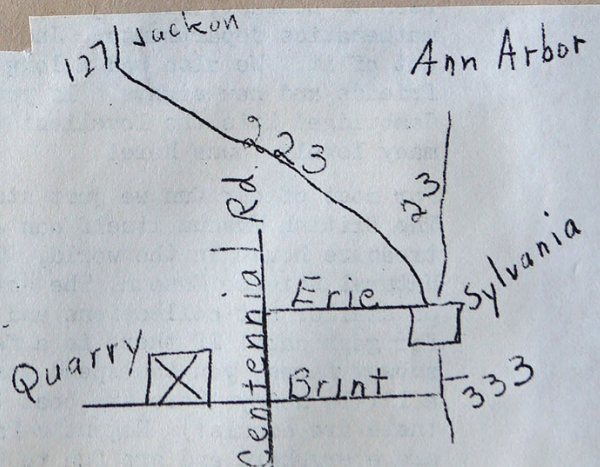 Jackon
127
Ann Arbor
223
23
Centennial Rd.
Erie
Sylvania
Quarry
Brint
333